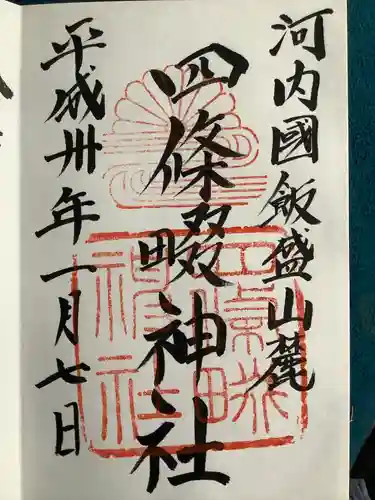 河内國飯盛山麓
四條畷神社
平成卅年一月七日
四條畷
神社